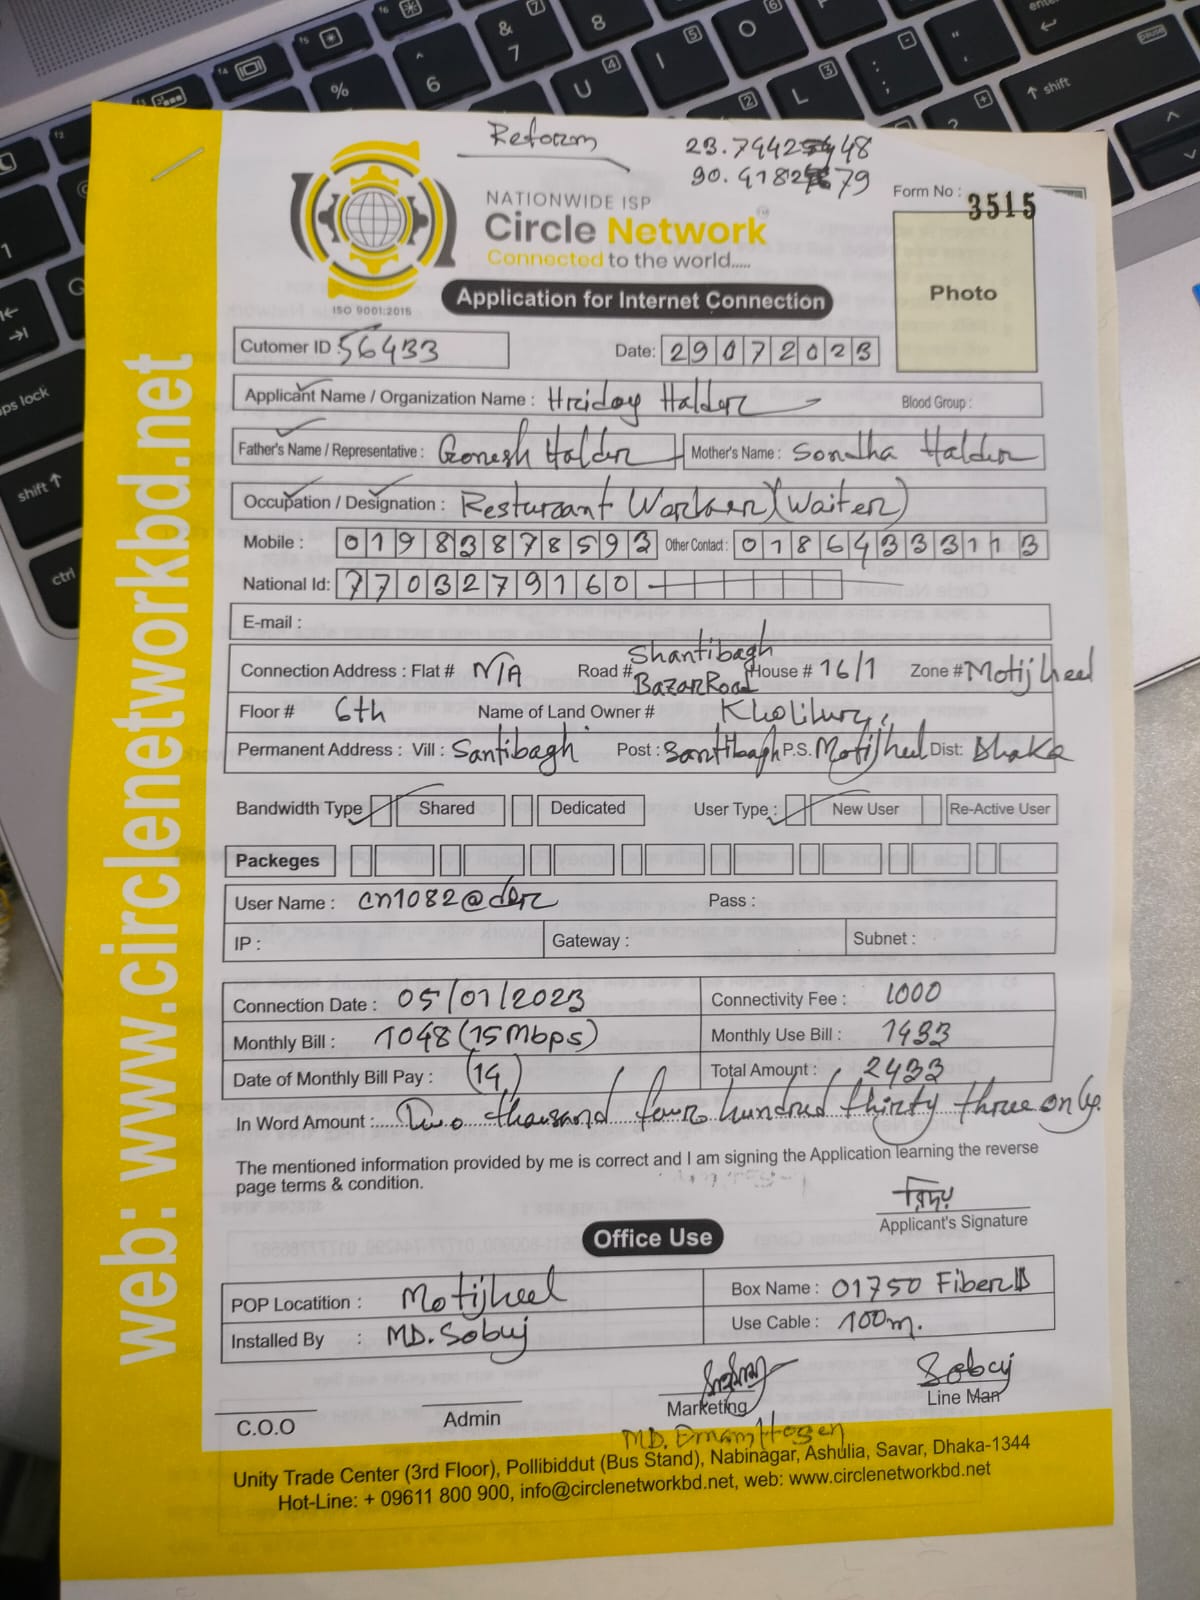 Reform
23.7442 48
90.4182 79
NATIONWIDE ISP
Circle Network
Connected to the world.....
ISO 9001:2015
Form No : 3515
Photo
Application for Internet Connection
Cutomer ID : 56433 Date: 29072023
Applicant Name / Organization Name : Hriday Halder Blood Group :
Father's Name / Representative : Gonesh Halder Mother's Name : Sondha Halder
Occupation / Designation : Resturant Worker (Waiter)
Mobile : 01983878593 Other Contact : 01864333113
National Id: 7703279160
E-mail :
Connection Address : Flat # N/A Road # Shantibagh Bazar Road House # 16/1 Zone # Motijheel
Floor # 6th Name of Land Owner #
Permanent Address : Vill : Santibagh Post : Santibagh P.S. Motijheel Dist: Dhaka
Bandwidth Type Shared Dedicated User Type : New User Re-Active User
Packeges
User Name : cn1082@der Pass :
IP : Gateway : Subnet :
Connection Date : 05/01/2023 Connectivity Fee : 1000
Monthly Bill : 1048 (15Mbps) Monthly Use Bill : 1433
Date of Monthly Bill Pay : (14) Total Amount : 2433
In Word Amount :...... Two thousand four hundred thirty three only.
The mentioned information provided by me is correct and I am signing the Application learning the reverse
page terms & condition.
হৃদয়
Applicant's Signature
Office Use
POP Locatition : Motijheel Box Name : 01750 Fiber
Installed By : MD. Sobuj Use Cable : 100m.
Sobuj
C.O.O Admin Marketing Line Man
MD. Emam Hosen
Unity Trade Center (3rd Floor), Pollibiddut (Bus Stand), Nabinagar, Ashulia, Savar, Dhaka-1344
Hot-Line: + 09611 800 900, info@circlenetworkbd.net, web: www.circlenetworkbd.net
web: www.circlenetworkbd.net